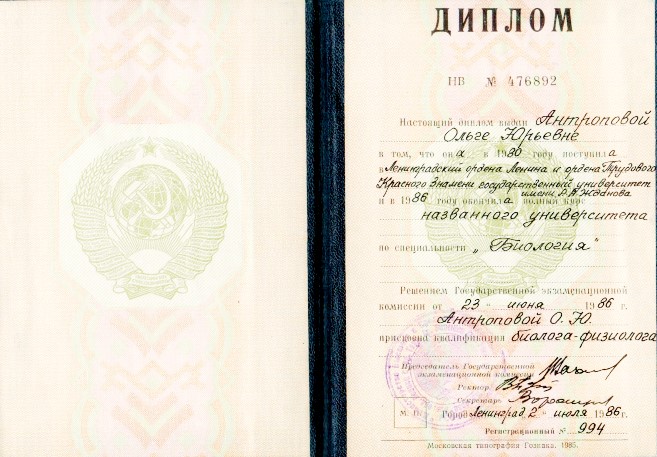 ДИПЛОМ
НВ № 476892
Настоящий диплом выдан Антроповой
Ольге Юрьевне
в том, что она в 1980 году поступила
в Ленинградский ордена Ленина и ордена Трудового
Красного Знамени государственный университет
имени А.А.Жданова
и в 1986 году окончила полный курс
названного университета
по специальности „Биология“
Решением Государственной экзаменационной
комиссии от „23“ июня 1986 г.
Антроповой О. Ю.
присвоена квалификация биолога-физиолога
Председатель Государственной
экзаменационной комиссии
Ректор
Секретарь
М. П. Город Ленинград, 2 июля 1986 г.
Регистрационный № 994
Московская типография Гознака. 1985.